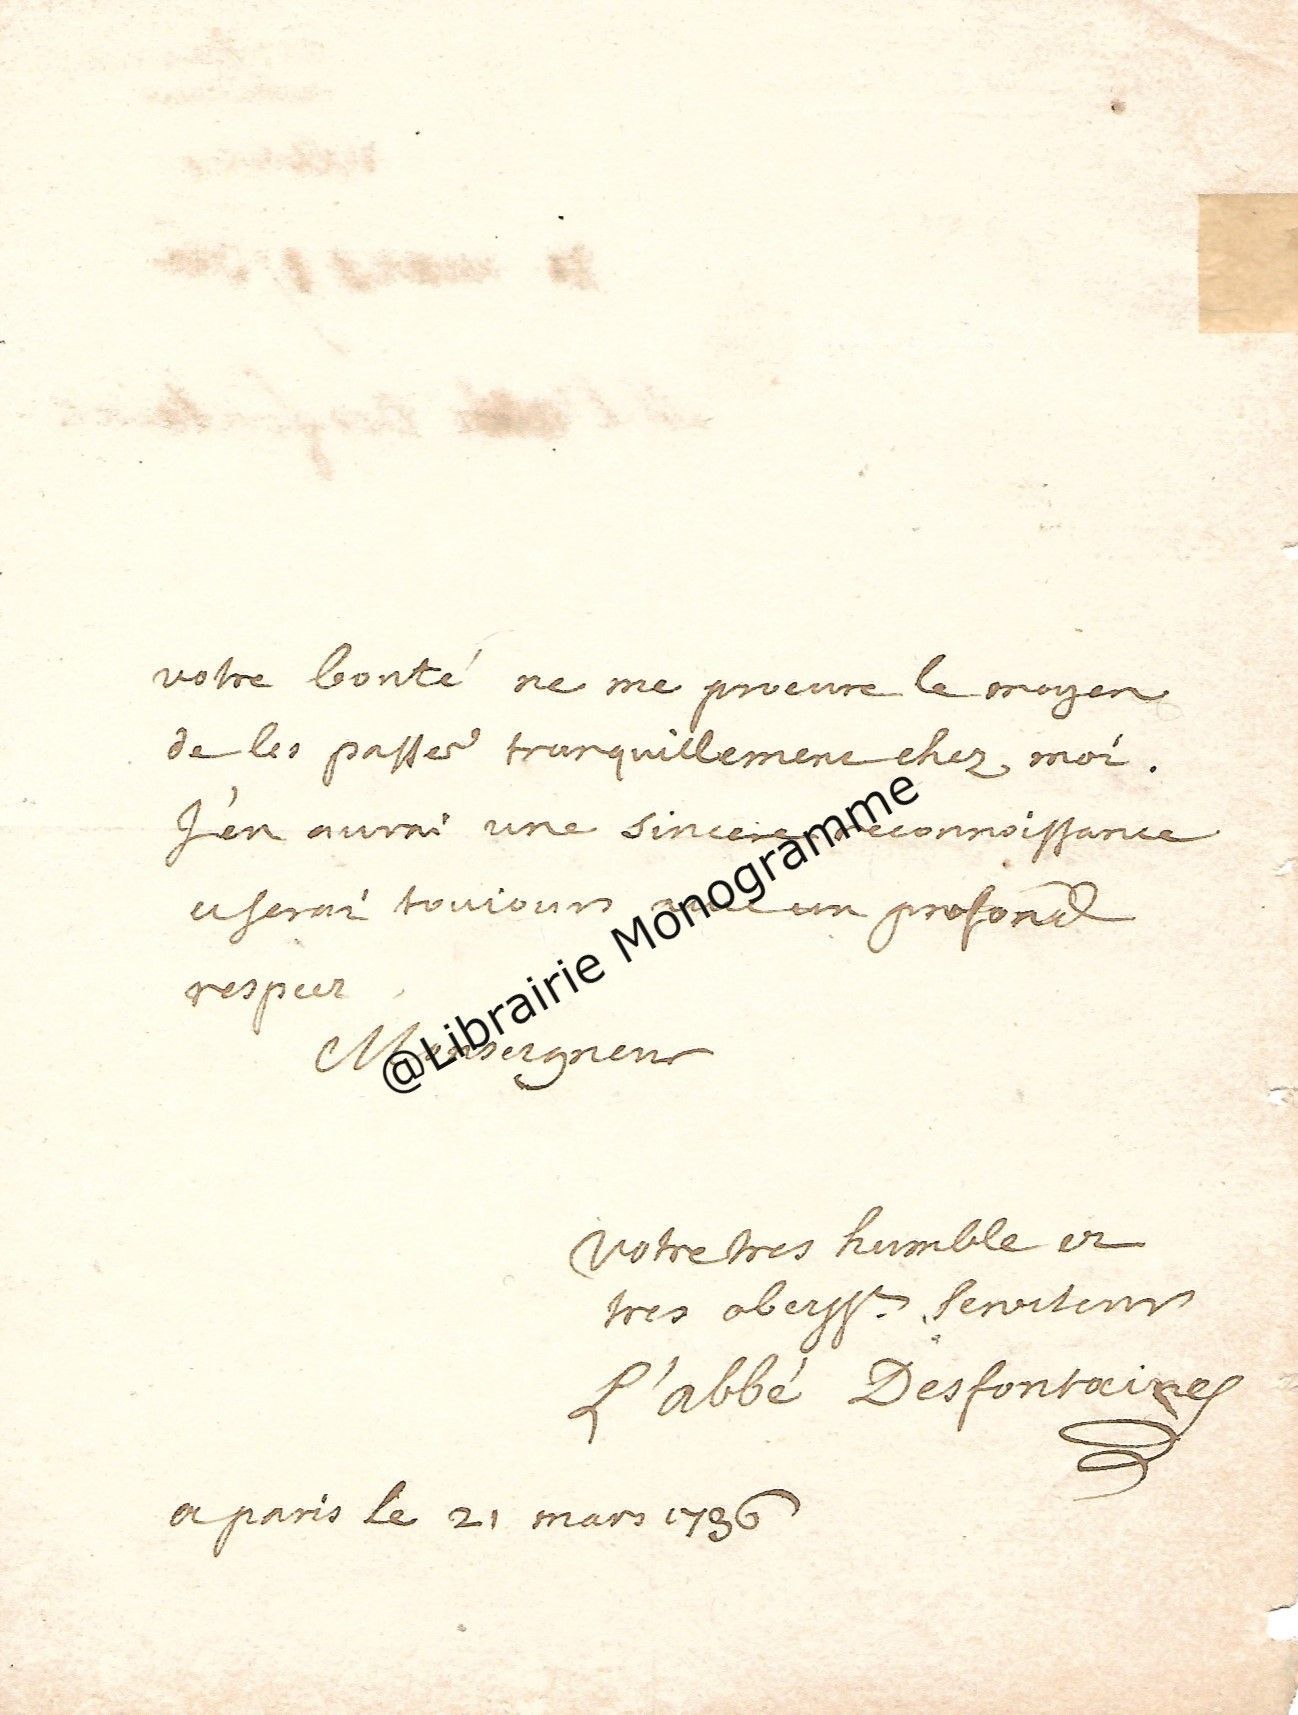 votre bonté ne me procure le moyen
de les passer tranquillement chez moi.
J'en aurai une sincere reconnoissance
et serai toujours avec un profond
respect
Monseigneur
@Librairie Monogramme
Votre tres humble et
tres obeisst. Serviteur
L'abbé Desfontaines
a paris le 21 mars 1736